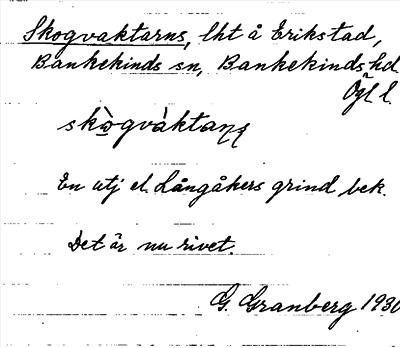 Skogvaktarns, lht å Erikstad,
Bankekinds sn, Bankekinds hd
Ögl l.
skògvàktaṇṣ
En utj el. Långåkers grind bek.
Det är nu rivet.
G. Granberg 1930